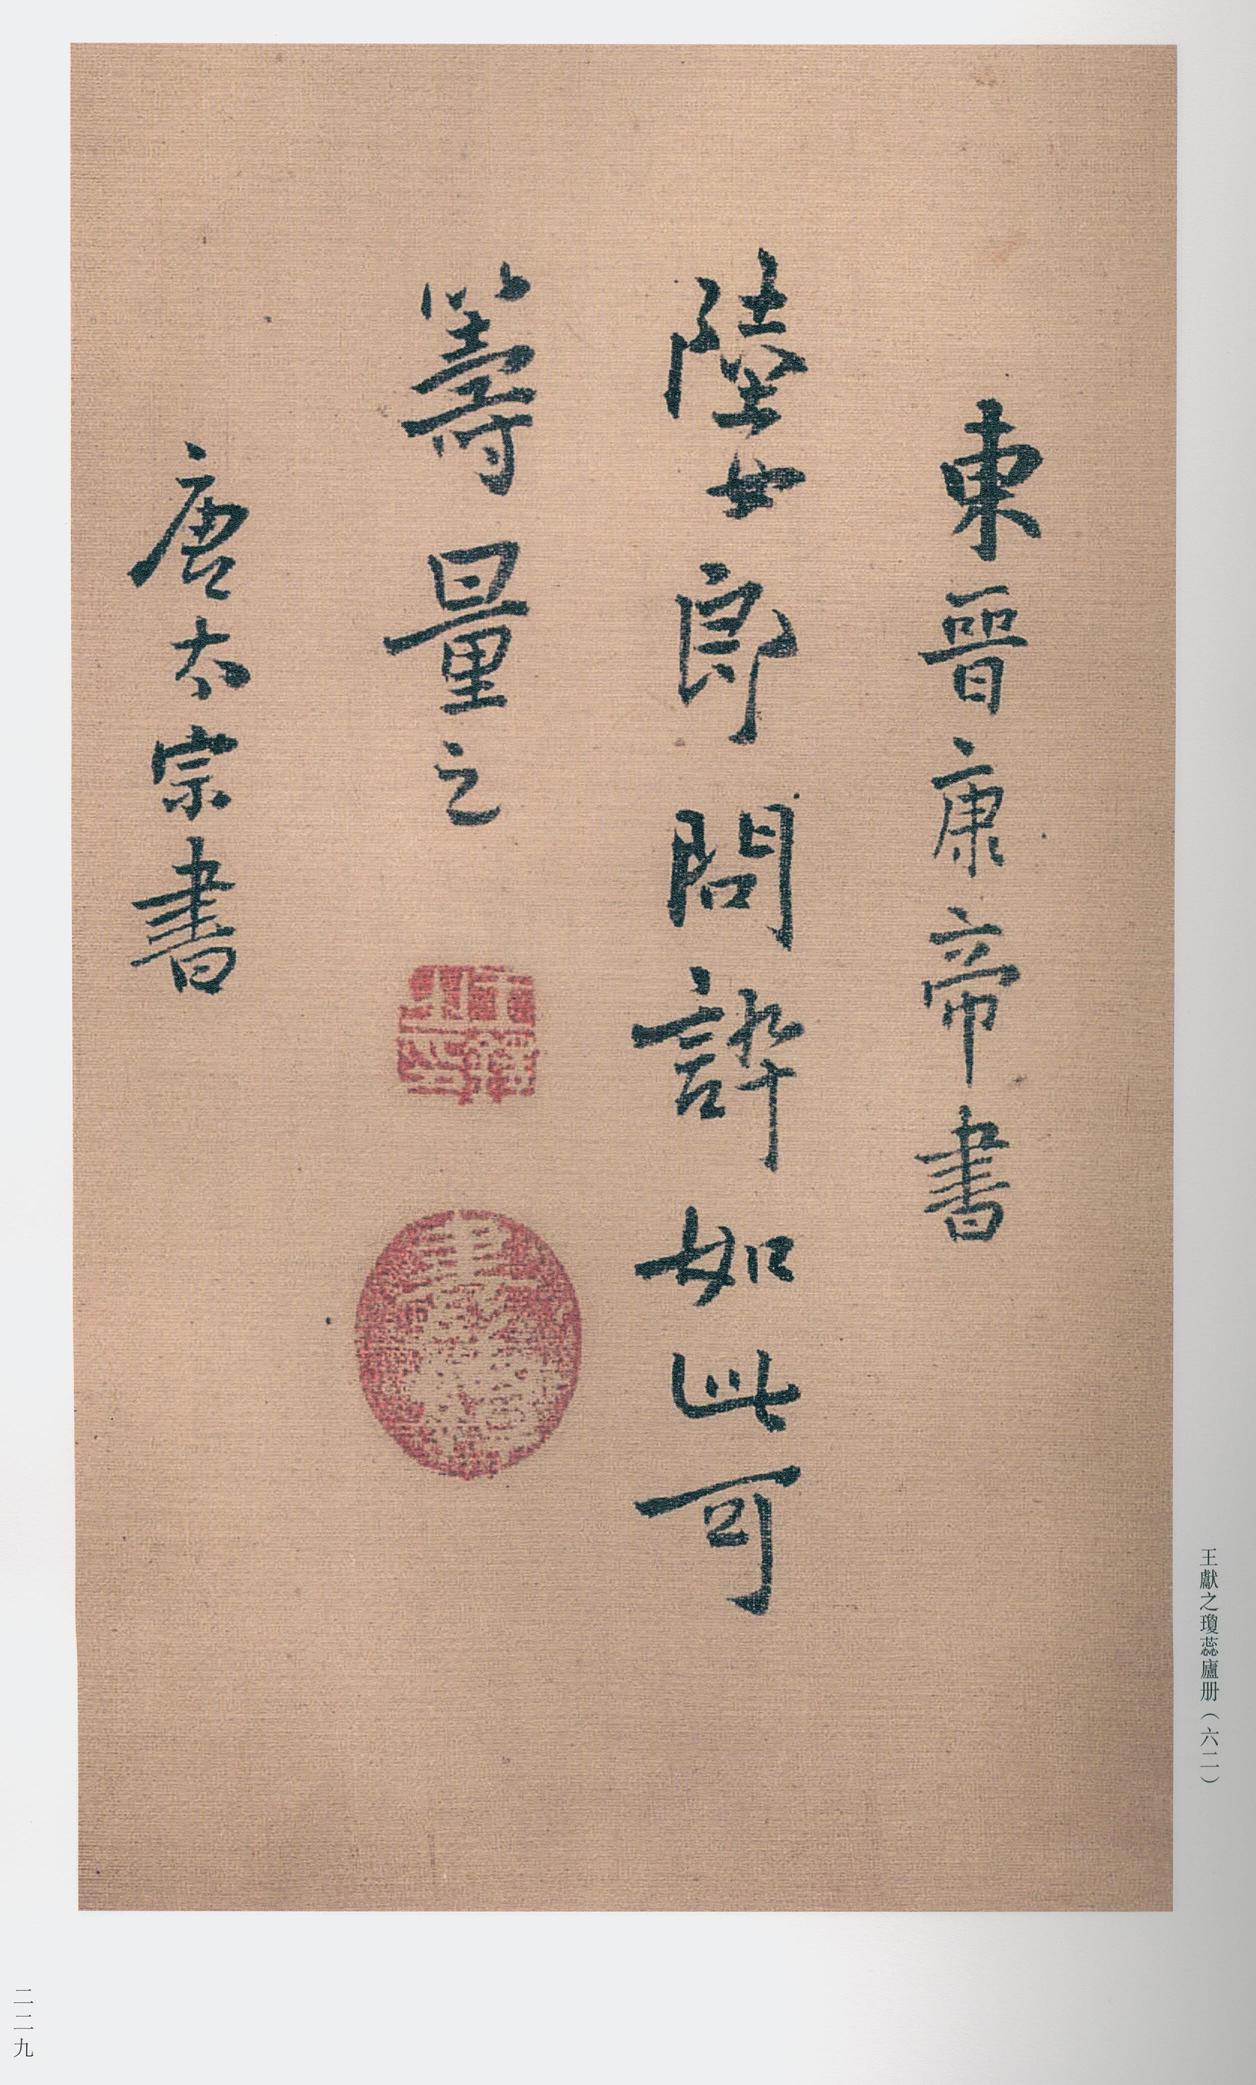 王獻之瓊蕊廬册（六二）
東晉康帝書
陸女郎問誶如此可
籌量之
唐太宗書
二二九